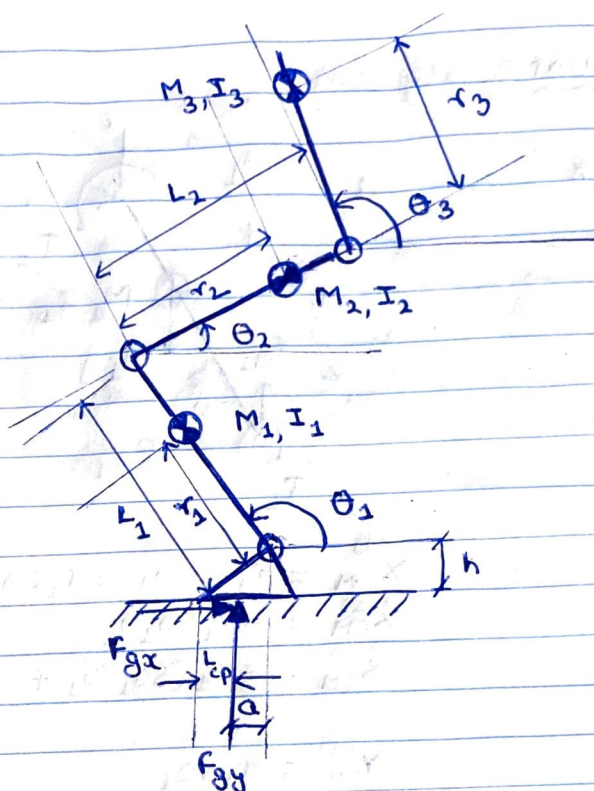 M3, I3
r3
L2
θ3
r2
M2, I2
θ2
M1, I1
L1
r1
θ1
h
Fgx
Lcp
a
Fgy